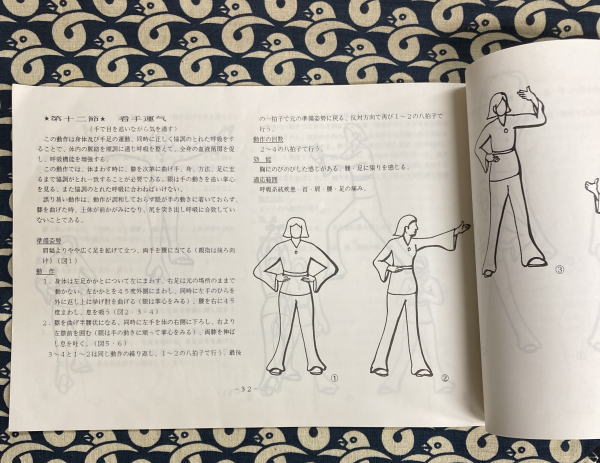 ★第十二節★　看手運气
（手で目を追いながら気を通す）
この動作は身体及び手足の運動、同時に正しく協調のとれた呼吸をす
ることで、体内の胸絡を順調に通じ呼吸を整えて、全身の血液循環を促
し、呼吸機能を増強する。
この動作では、体まわす時に、膝を次第に曲げ手、身、方法、足に至
るまで協調がとれ一致することが必要である。眼は手の動きを追い掌心を
見る、また協調のとれた呼吸に合わねばいけない。
誤り易い動作は、動作が調和しておらず眼が手の動きに着いておらず、
膝を曲げた時、上体が前かがみになり、尻を突き出し呼吸に合致してい
ないことである。
準備姿勢
肩幅よりやや広く足を拡げて立つ、両手を腰に当てる（親指は後ろ向
け）（図１）
動　作
１．身体は左足かかとについて左にまわす、右足は元の場所のままで
動かない。左かかとを４５度外側にまわし、同時に左手のひらを
外に返し上に挙げ肘を曲げる（眼は掌心をみる）、腰を右に４５
度まわし、息を吸う（図２・３・４）
２．膝を曲げ半腰状になる、同時に左手を体の右側に下ろし、右より
左膝前を囲む（眼は手の動きに順って掌心をみる）、両膝を伸ば
し息を吐く。（図５・６）
３～４と１～２は同じ動作の繰り返し、１～２の八拍子で行う、最後
－３２－
の一拍子で元の準備姿勢に戻る、反対方向で再び１～２の八拍子で
行う。
動作の回数
２～４の八拍子で行う。
効　能
胸にのびのびした感じがある、腰・足に張りを感じる。
適応範囲
呼吸系統疾患・首・肩・腰・足の痛み。
①
②
③